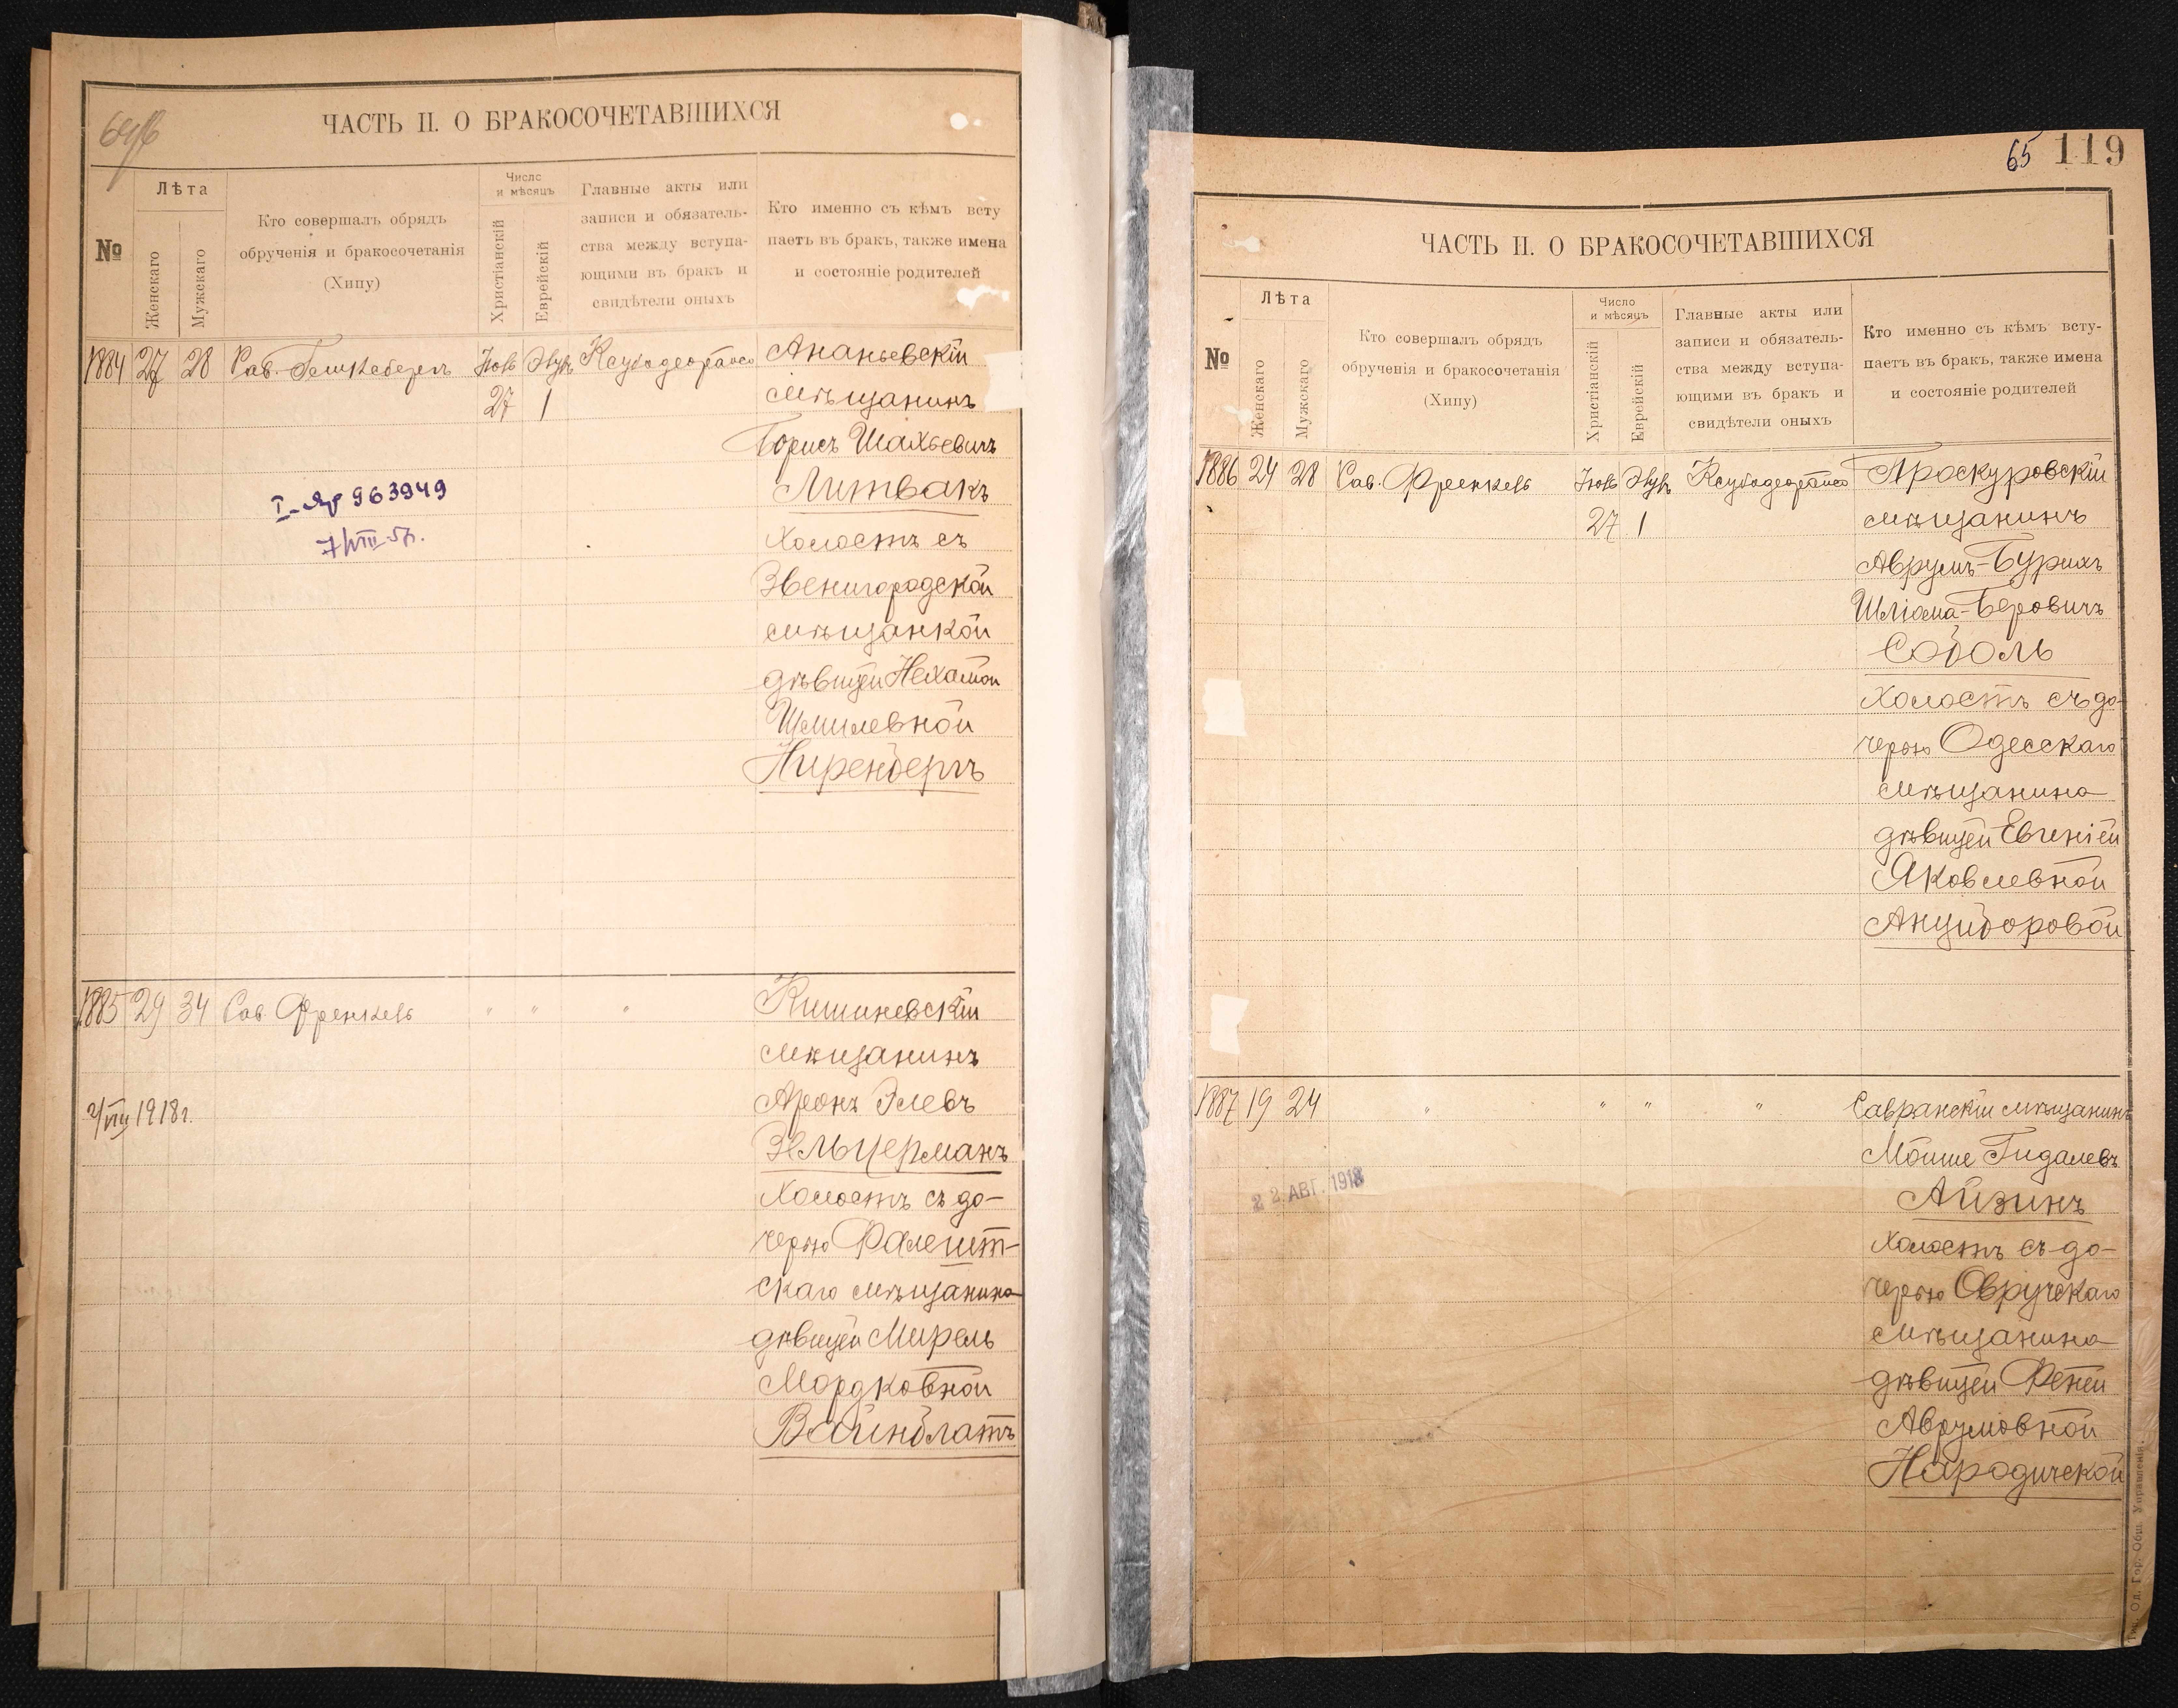 ЧАСТЬ II. О БРАКОСОЧЕТАВШИХСЯ
№
Лѣта
Женскаго
Мужскаго
Кто совершалъ обрядъ
обрученія и бракосочетанія
(Хипу)
Число
и мѣсяцъ
Христіанскій
Еврейскій
Главные акты или
записи и обязатель-
ства между вступа-
ющими въ бракъ и
свидѣтели оныхъ
Кто именно съ кѣмъ всту
паетъ въ бракъ, также имена
и состояніе родителей
1884 27 28 Рав. Іюль Ананьевскій
27 1 мѣщанинъ
Борисъ Шахьевичъ
963949 Литвакъ
холостъ съ
Звенигородской
мѣщанкой
дѣвицей Нехамой
Шмилевной
Ниренбергъ
1885 29 34 Рав. Френкель " " " Кишиневскій
мѣщанинъ
2/VIII 1918г. Аронъ Элевъ
Зельцерманъ
холостъ съ до-
черью Фалешт-
скаго мѣщанина
дѣвицей Мирель
Мордковной
Вайнблатъ
65 119
ЧАСТЬ II. О БРАКОСОЧЕТАВШИХСЯ
№
Лѣта
Женскаго
Мужскаго
Кто совершалъ обрядъ
обрученія и бракосочетанія
(Хипу)
Число
и мѣсяцъ
Христіанскій
Еврейскій
Главные акты или
записи и обязатель-
ства между вступа-
ющими въ бракъ и
свидѣтели оныхъ
Кто именно съ кѣмъ всту-
паетъ въ бракъ, также имена
и состояніе родителей
1886 24 28 Рав. Френкель Іюль Проскуровскій
27 1 мѣщанинъ
Аврумъ-Бурихъ
Шліома-Беровичъ
Соболь
холостъ съ до-
черью Одесскаго
мѣщанина
дѣвицей Евгеніей
Яковлевной
1887 19 24 " " " " Савранскій мѣщанинъ
Мойше Гидалевъ
22 АВГ. 1918 Айзинъ
холостъ съ до-
черью Овручскаго
мѣщанина
дѣвицей Феней
Аврумовной
Народичской
Тип. Од. Гор. Общ. Управленія.